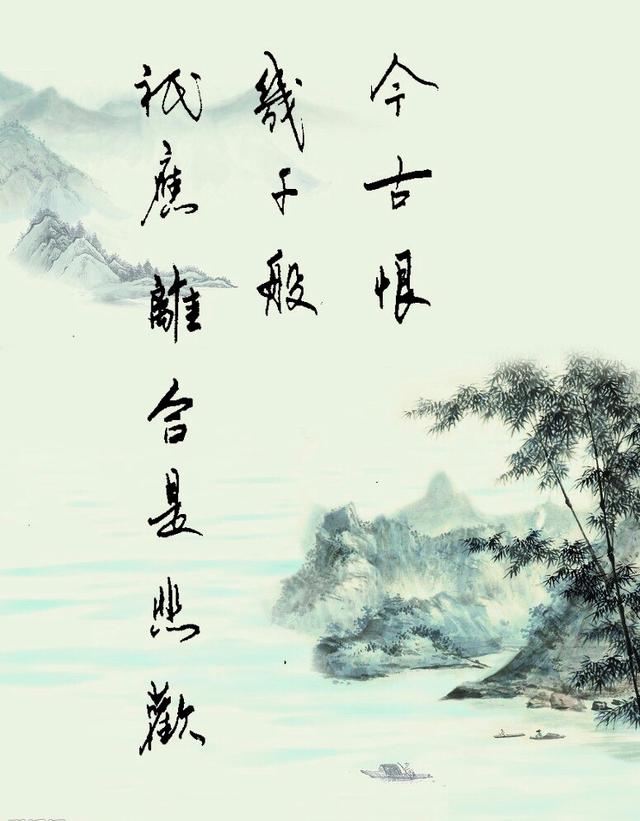 今古恨
幾千般
祇應離合是悲歡